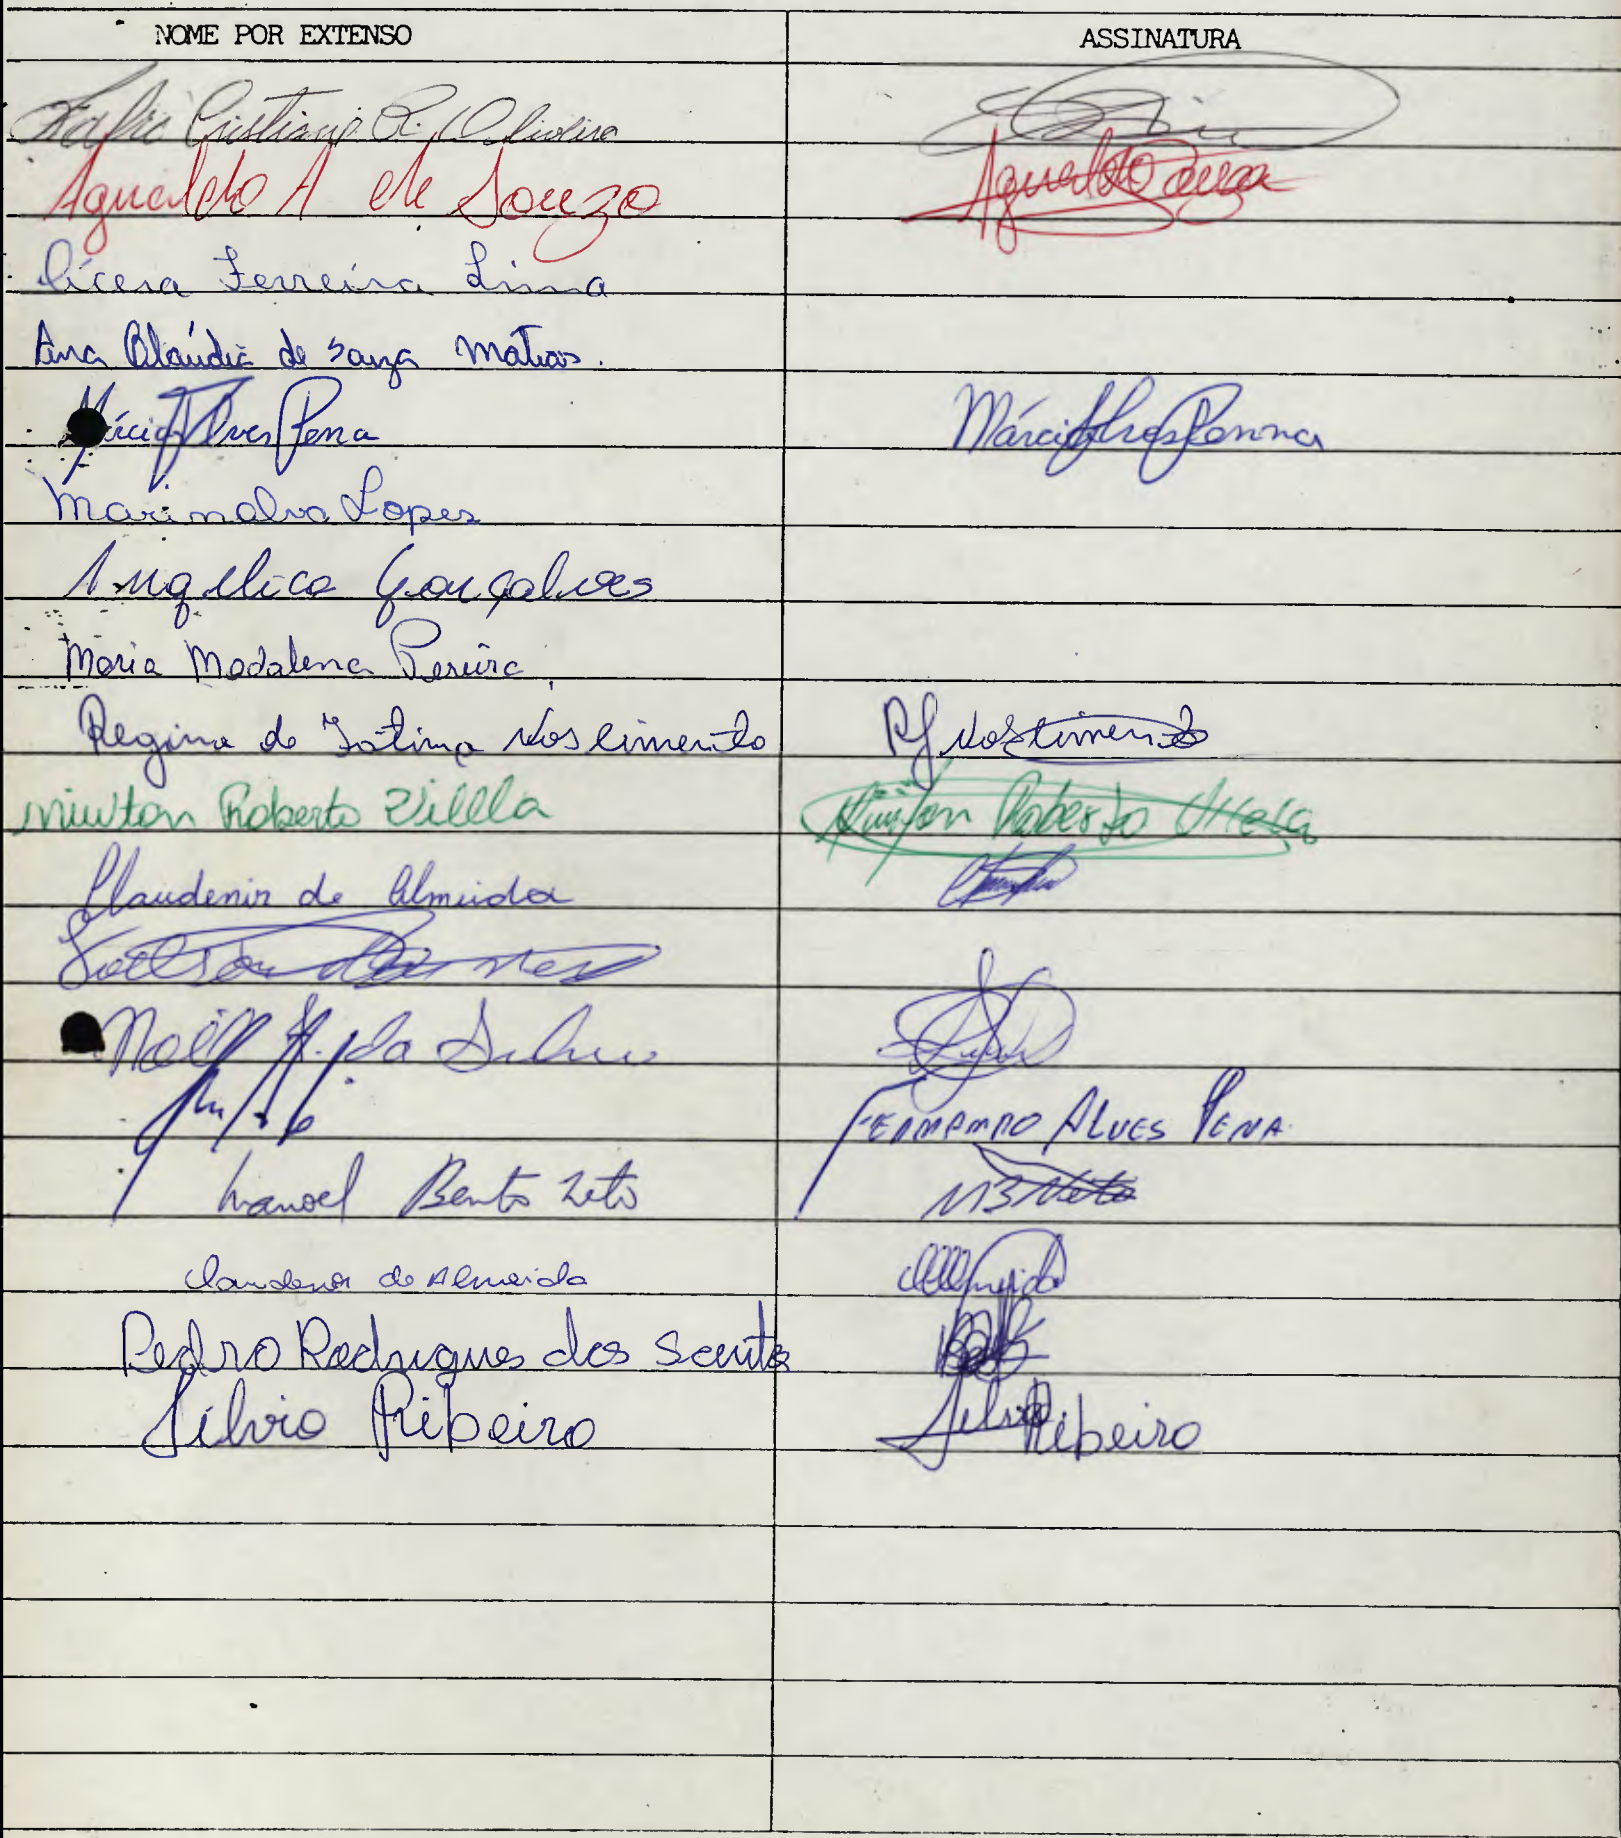 NOME POR EXTENSO ASSINATURA
Cristiano R. Oliveira
Agnaldo A de Souza Agnaldo Souza
Cícera Ferreira Lima
Ana Claúdia de Souza Matias.
Márcio Alves Pena Márcio Alves Penna
Marinalva Lopes
Angelica Gonçalves
Maria Madalena Pereira
Regina de Fatima Nascimento RF Nascimento
Niwton Roberto Villla Niwton Roberto Villela
Claudenir de Almeida
Noel A. da Silva
FERNANDO ALVES PENA
Manoel Bento Neto MB Neto
Claudenor de Almeida Almeida
Pedro Rodrigues dos Santos
Silvio Ribeiro Silvio Ribeiro